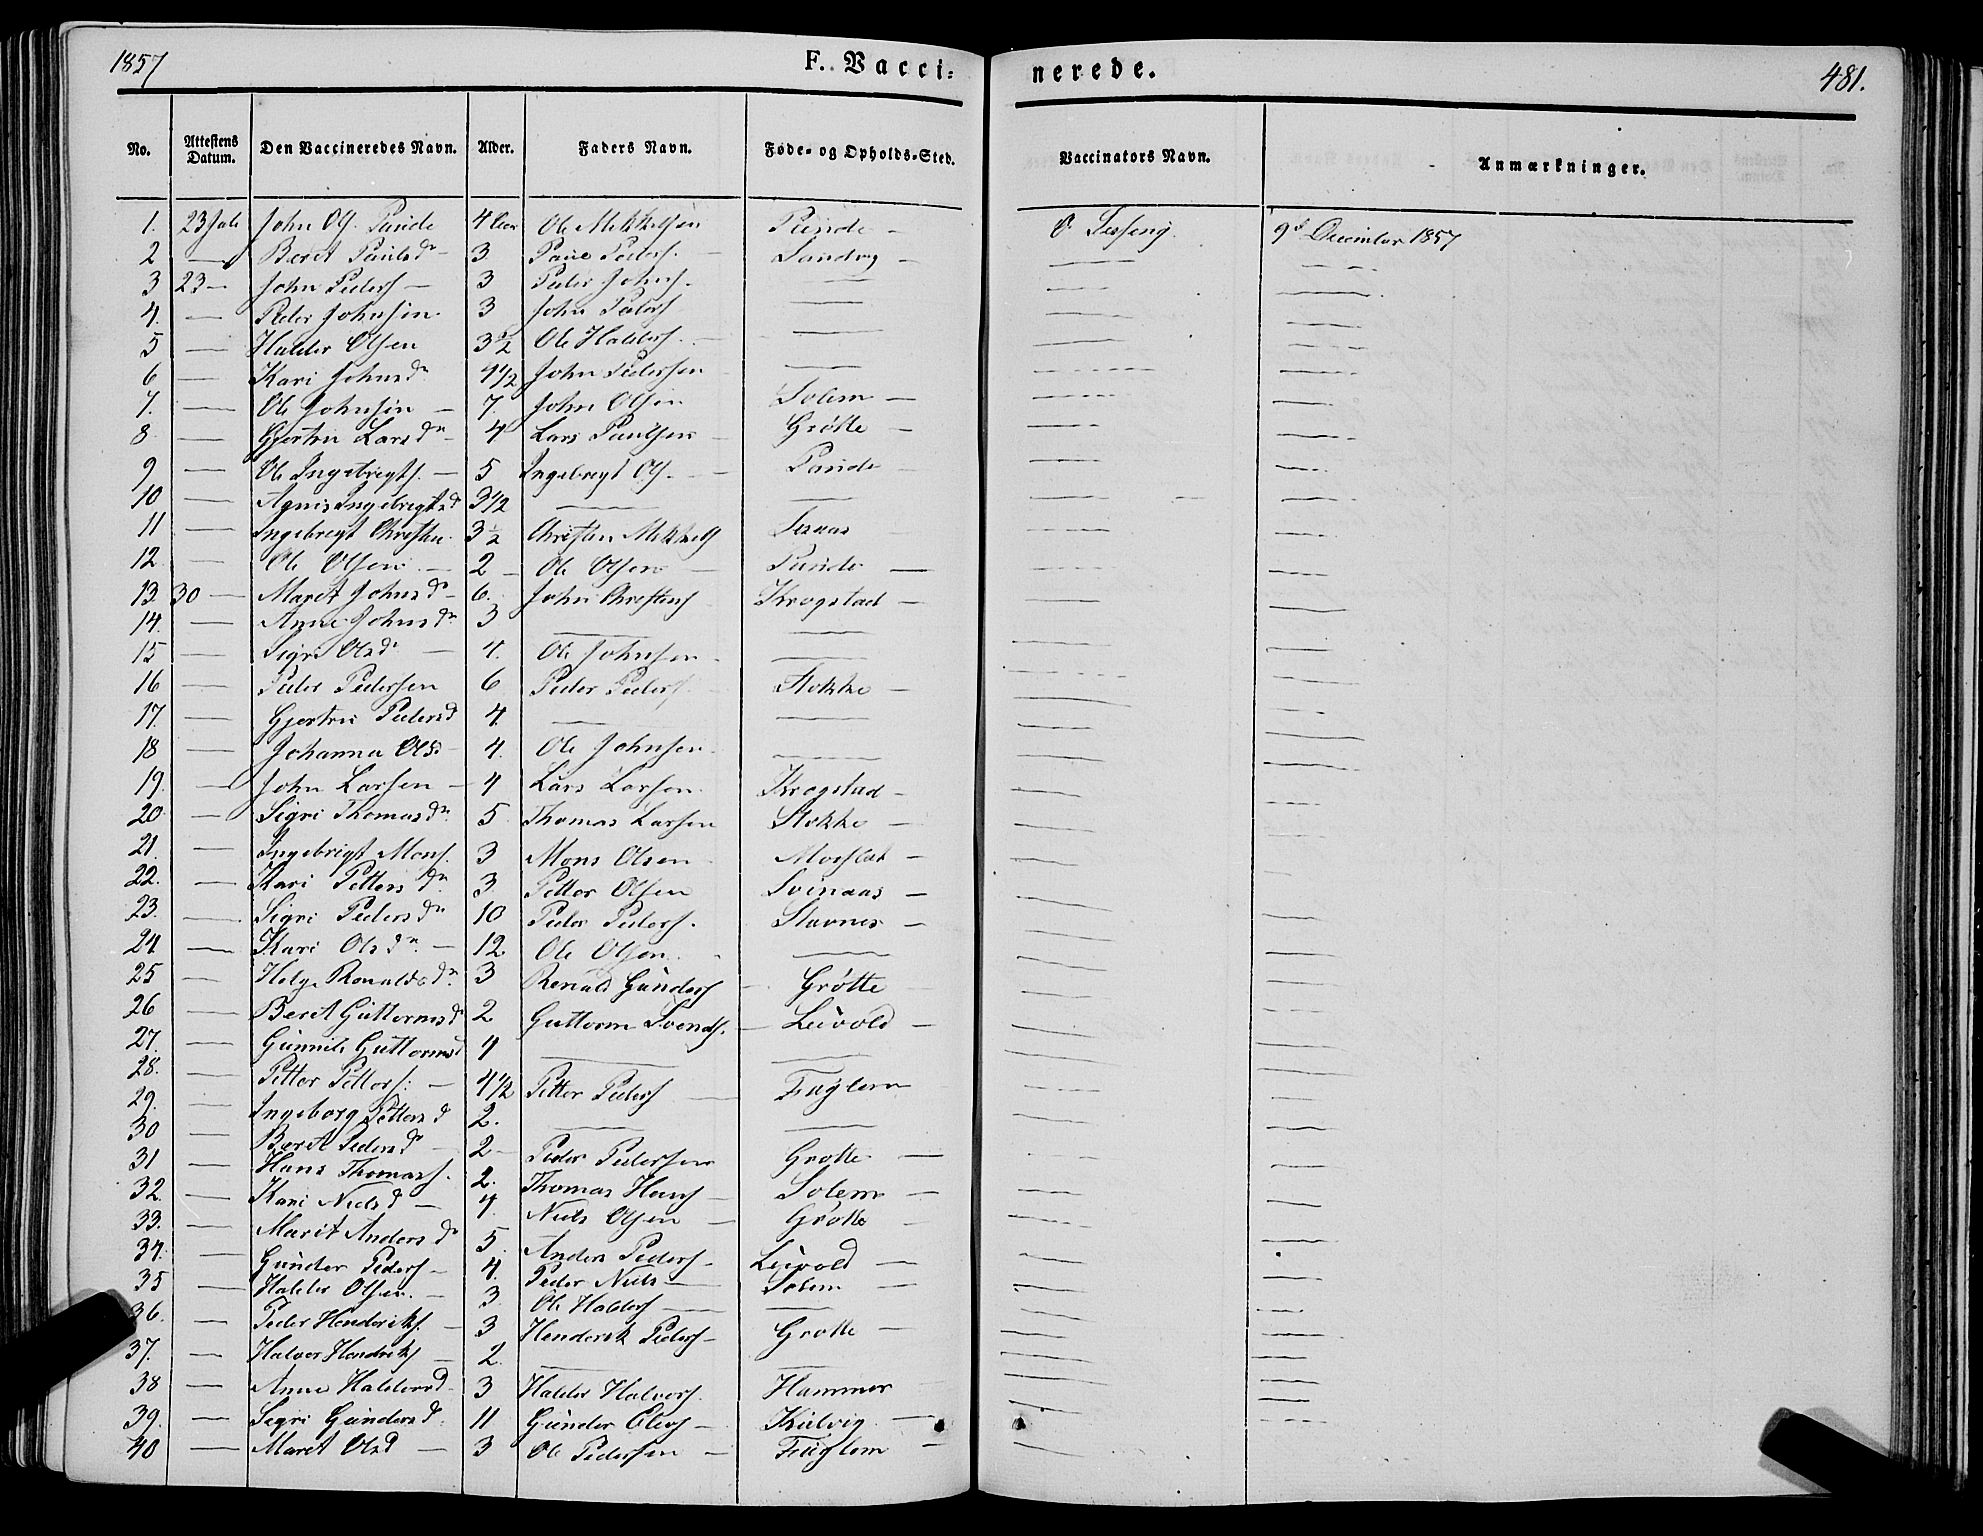 1857 F. Vacci: nerede. 481.
No. Attestens Datum. Den Vaccineredes Navn. Alder. Faders Navn. Føde- og Opholds-Sted. Vaccinators Navn. Anmærkninger.
1. 23 Juli John Ols. Tuúde 4 Ole Mikkelsen 9d December 1857
2 — Berit Pauls dr 3 —
3 23 — John Peders — 3 Peder Johns. —
4. — Peder Johnsen. 3 John Peders —
5 — Halder Olsen 3½ Ole Halders. —
6 — Kari Johns dr 4½ John Pedersen —
7. — Ole Johnsen — 7. John Olsen Solem —
8. — Gjertru Lars dr — 4 Lars Paulsen — Grøtte —
9 — Ole Ingebregts. — 5 Ingebregt Ols. —
10 — Agnis Ingebregts d 3½ — —
11 — Ingebregt Christen. 3½ Christen Mikkels
12. — Ole Olsen — 2 — Ole Olsen —
13 30 — Marit Johns dr — 6. John Christens Krogstad —
14. — Anne Johns dr 3 — —
15 — Sigri Ols dr — 4. Ole Johnsen. —
16 — Peder Pedersen 6 Peder Peders. Stokke —
17. — Gjertru Peders d 4. — —
18 — Johanna Ols d — 4. Ole Johnsen —
19. — John Larsen — 4 Lars Larsen. Krogstad —
20 — Sigri Thomas dr. 5. Thomas Larsen Stokke —
21. — Ingebrigt Mons. 3 Mons Olsen
22. — Kari Petters dr. 3. Petter Olsen Svinaas —
23. — Sigri Peders dr 10 Peder Peders. Stavnes —
24 — Kari Ols dr. — 12. Ole Olsen. —
25 — Helge Ronalds dr. 3 Renald Gunders — Grøtte
26 — Berit Guttorms d 2 Guttorm Svends. — Leivold —
27. — Gunnild Guttorms d 4 — —
28. — Petter Petters: — 4½ Petter Peders — Fuglem
29. — Ingeborg Petters d 2. — —
30 — Berit Peders dr — 2 — Peder Pedersen Grøtte —
31 — Hans Thomas s. 2. Thomas Hans — Solem —
32. — Kari Niels d — 4. Niels Olsen — Grøtte —
33. — Marit Anders dr 5. Anders Peders — Leivold —
34. — Gunder Peders — 4. Peder Niels — Solem —
35 — Halder Olsen. — 3. Ole Halders — —
36. — Peder Henderiks. — 3 Henderik Peders — Grøtte —
37. — Halvor Hendriks — 2. — —
38 — Anne Haldors d. 3 Halder Halvors. Hammer —
39. — Sigri Gunders d. 11 Gunder Olers — Kulvig. —
40 — Maret Ols d — 3 Ole Pedersen — Fuglem —